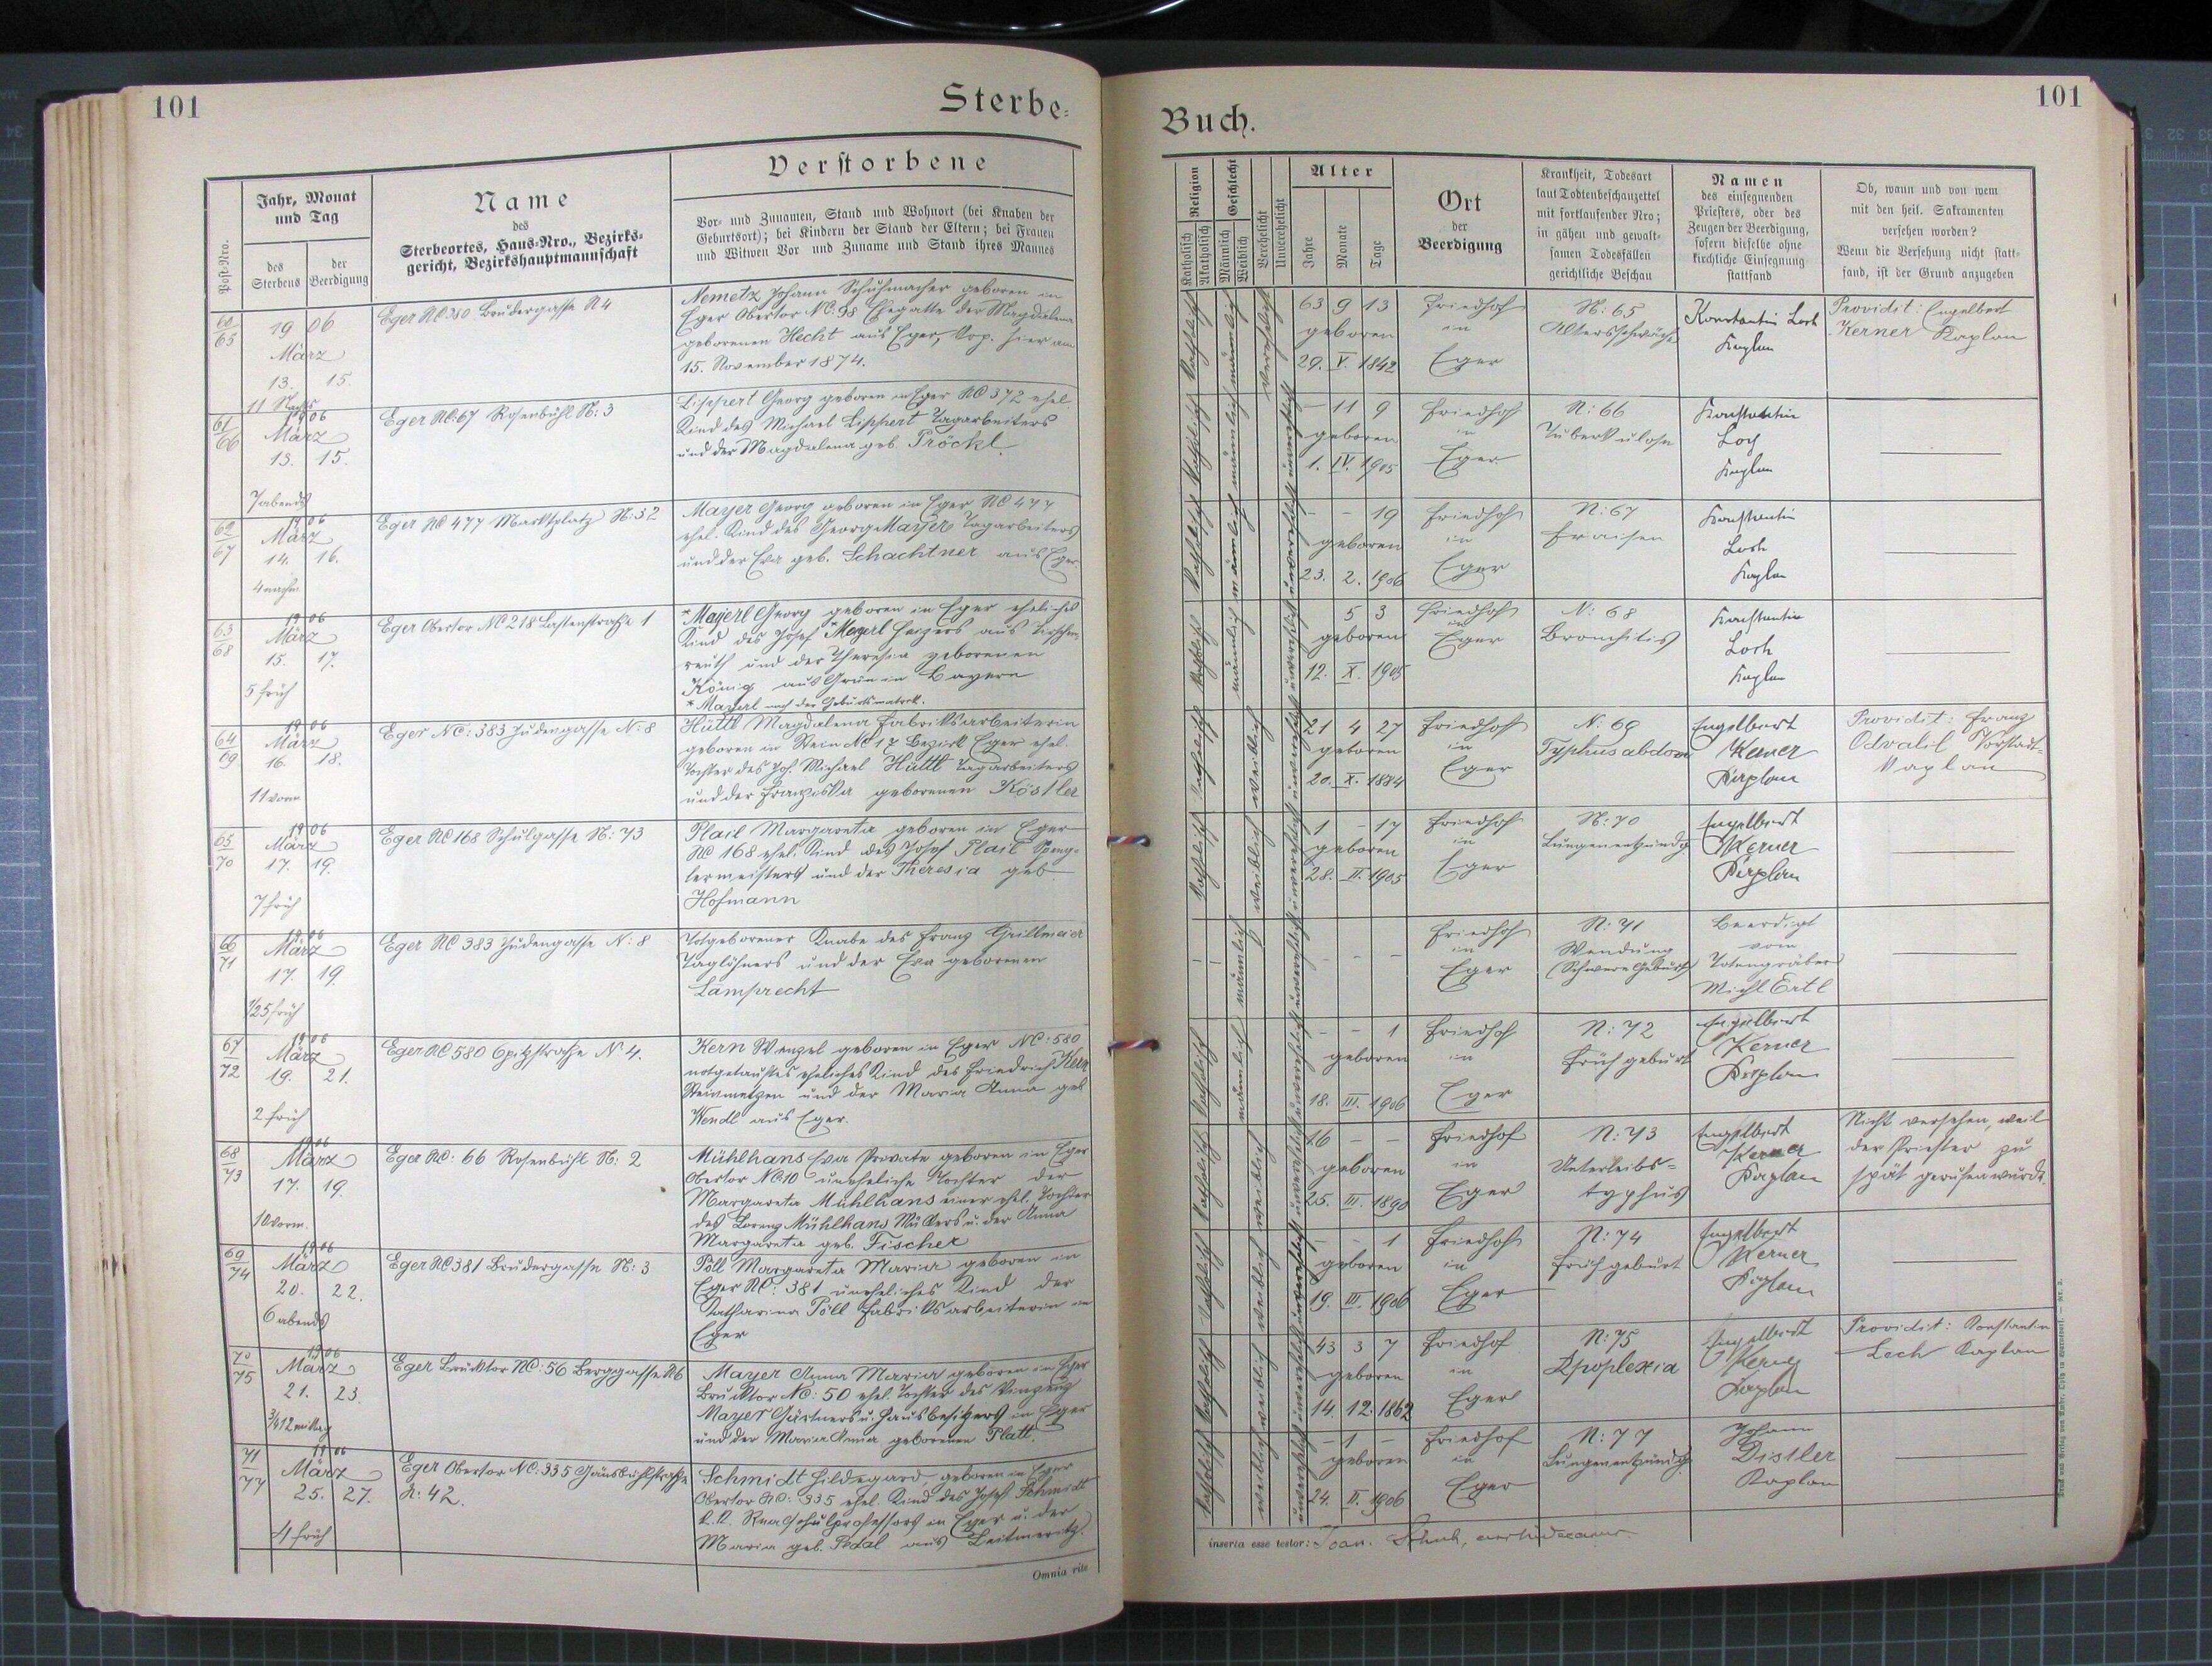 101
Sterbe-
Buch.
101
Post-Nro.
Jahr, Monat
und Tag
des
Sterbens
der
Beerdigung
Name
des
Sterbeortes, Haus-Nro., Bezirks-
gericht, Bezirkshauptmannschaft
Verstorbene
Vor- und Zunamen, Stand und Wohnort (bei Knaben der
Geburtsort); bei Kindern der Stand der Eltern; bei Frauen
und Witwen Vor und Zuname und Stand ihres Mannes
Religion
Katholisch
Akatholisch
Geschlecht
Männlich
Weiblich
Verehelicht
Unverehelicht
Alter
Jahre
Monate
Tage
Ort
der
Beerdigung
Krankheit, Todesart
laut Todtenbeschauzettel
mit fortlaufender Nro;
in gähen und gewalt-
samen Todesfällen
gerichtliche Beschau
Namen
des einsegnenden
Priesters, oder des
Zeugen der Beerdigung,
sofern dieselbe ohne
kirchliche Einsegnung
stattfand
Ob, wann und von wem
mit den heil. Sakramenten
versehen worden?
Wenn die Versehung nicht statt-
fand, ist der Grund anzugeben
60
65
1906
März
13. 15.
Eger NC 280 Brudergasse N 4
Nemetz Johann Schuhmacher geboren in
Eger Obertor NC: 98 Ehegatte der Magdalena
geborenen Hecht aus Eger, Cop. hier am
15. November 1874.
katholisch
männlich
verehelicht
63 9 13
geboren
29. V. 1842
Friedhof
in
Eger
N: 65
Altersschwäche
Konstantin Loch
Kaplan
Providit: Engelbert
Kerner Kaplan
61
66
1906
März
13. 15.
7 abends
Eger NC: 67 Rosenbühl N: 3
Lippert Georg geboren in Eger NC 372 ehel.
Kind des Michael Lippert Tagarbeiters
und der Magdalena geb. Pröckl.
katholisch
männlich
unverehelicht
- 11 9
geboren
1. IV. 1905
Friedhof
in
Eger
N: 66
Tuberkulose
Konstantin
Loch
Kaplan
62
67
1906
März
14. 16.
4 nachm.
Eger NC 477 Marktplatz N: 32
Mayer Georg geboren in Eger NC 477
ehel. Kind des Georg Mayer Tagarbeiters
und der Eva geb. Schachtner aus Eger.
katholisch
männlich
unverehelicht
- - 19
geboren
23. 2. 1906
Friedhof
in
Eger
N: 67
Fraisen
Konstantin
Loch
Kaplan
63
68
1906
März
15. 17.
5 früh
Eger Obertor NC 218 Lastenstraße 1
* Mayerl Georg geboren in Eger eheliches
Kind des Josef * Mayerl Heizers aus Tirschen
reuth und der Theresia geborenen
König aus Grün in Bayern
* Mayerl nach der Geburtsmatrik.
katholisch
männlich
unverehelicht
5 3
geboren
12. X. 1905
Friedhof
in
Eger
N: 68
Bronchitis
Konstantin
Loch
Kaplan
64
69
1906
März
16. 18.
11 vorm
Eger NC: 383 Judengasse N: 8
Hüttl Magdalena Fabriksarbeiterin
geboren in Stein NC 17 Bezirk Eger ehel.
Tochter des Joh. Michael Hüttl Tagarbeiters
und der Franziska geborenen Köstler
katholisch
weiblich
unverehelicht
21 4 27
geboren
20. X. 1884
Friedhof
in
Eger
N: 69
Typhus abdom
Engelbert
Kerner
Kaplan
Providit: Franz
Odvalil Vorstadt-
kaplan
65
70
1906
März
17. 19.
7 früh
Eger NC 168 Schulgasse N: 73
Plail Margareta geboren in Eger
NC 168 ehel. Kind des Josef Plail Speng-
lermeisters und der Theresia geb
Hofmann
katholisch
weiblich
unverehelicht
1 - 17
geboren
28. II. 1905
Friedhof
in
Eger
N: 70
Lungenentzündg.
Engelbert
Kerner
Kaplan
66
71
1906
März
17. 19.
1/25 früh
Eger NC 383 Judengasse N: 8
Totgeborener Knabe des Franz Grillmeier
Taglöhners und der Eva geborenen
Lamprecht
männlich
unverehelicht
- - -
Friedhof
in
Eger
N: 71
Wendung
(Schwere Geburt)
Beerdigt
vom
Totengräber
Michl Ertl
67
72
1906
März
19. 21.
2 früh
Eger NC 580 Spitzstraße N 4.
Kern Wenzel geboren in Eger NC: 580
notgetauftes eheliches Kind des Friedrich Kern
Steinmetzen und der Maria Anna geb
Wendl aus Eger.
katholisch
männlich
unverehelicht
- - 1
geboren
18. III. 1906
Friedhof
in
Eger
N: 72
Frühgeburt
Engelbert
Kerner
Kaplan
68
73
1906
März
17. 19.
10 vorm.
Eger NC: 66 Rosenbühl N: 2
Mühlhans Eva Private geboren in Eger
Obertor NC 10 uneheliche Tochter der
Margareta Mühlhans einer ehel. Tochter
des Lorenz Mühlhans Müllers u. der Anna
Margareta geb. Fischer
katholisch
weiblich
unverehelicht
16 - -
geboren
25. III. 1890
Friedhof
in
Eger
N: 73
Unterleibs-
typhus
Engelbert
Kerner
Kaplan
Nicht versehen, weil
der Priester zu
spät gerufen wurde.
69
74
1906
März
20. 22.
6 abends
Eger NC 381 Brudergasse N: 3
Pöll Margareta Maria geboren in
Eger NC: 381 uneheliches Kind der
Katharina Pöll Fabriksarbeiterin in
Eger
katholisch
weiblich
unverehelicht
- - 1
geboren
19. III. 1906
Friedhof
in
Eger
N: 74
Frühgeburt
Engelbert
Kerner
Kaplan
70
75
1906
März
21. 23.
3/412 mittag
Eger Brucktor NC: 56 Berggasse N 6
Mayer Anna Maria geboren in Eger
Brucktor NC: 50 ehel. Tochter des Vinzenz
Mayer Gärtners u. Hausbesitzers in Eger
und der Maria Anna geborenen Platt.
katholisch
weiblich
unverehelicht
43 3 7
geboren
14. 12. 1862
Friedhof
in
Eger
N: 75
Apoplexia
Engelbert
Kerner
Kaplan
Providit: Konstantin
Loch Kaplan
71
77
1906
März
25. 27.
4 früh
Eger Obertor NC: 335 Gänsbühlstraße
N: 42.
Schmidt Hildegard geboren in Eger
Obertor NC: 335 ehel. Kind des Josef Schmidt
k. k. Realschulprofessors in Eger u. der
Maria geb. aus Leitmeritz.
katholisch
weiblich
unverehelicht
- 1 -
geboren
24. II. 1906
Friedhof
in
Eger
N: 77
Lungenentzündg.
Johann
Distler
Kaplan
Omnia rite
inserta esse testor: Joan.